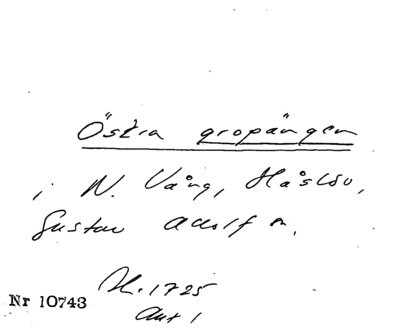 Östra gropängen
i N. Vång, Håslöv,
Gustav Adolf sn,
Nr 10743
H. 1725
Akt 1